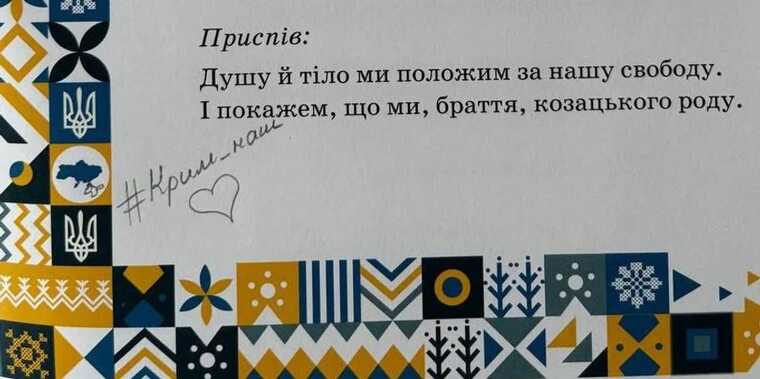 Приспів:
Душу й тіло ми положим за нашу свободу.
І покажем, що ми, браття, козацького роду.
#Крим_наш